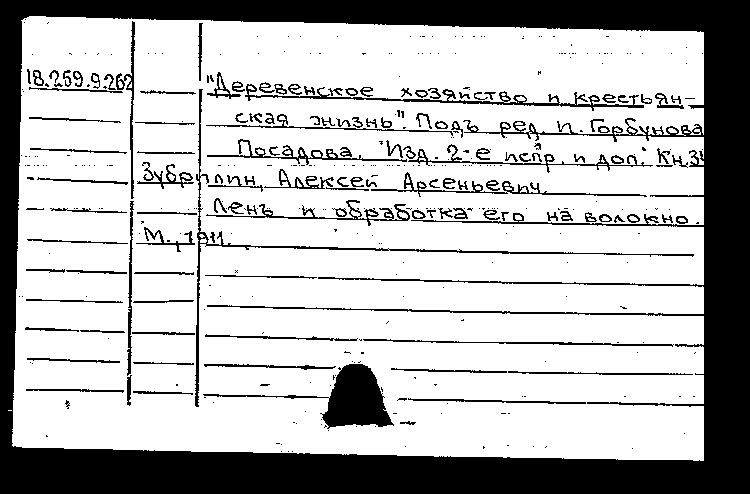 18.259.9.262
"Деревенское хозяйство и крестьян-
ская жизнь". Подъ ред. И. Горбунова
Посадова. Изд. 2-е испр. и доп. Кн. 34
Зубрилин, Алексей Арсеньевич.
Ленъ и обработка его на волокно.
М., 1911.